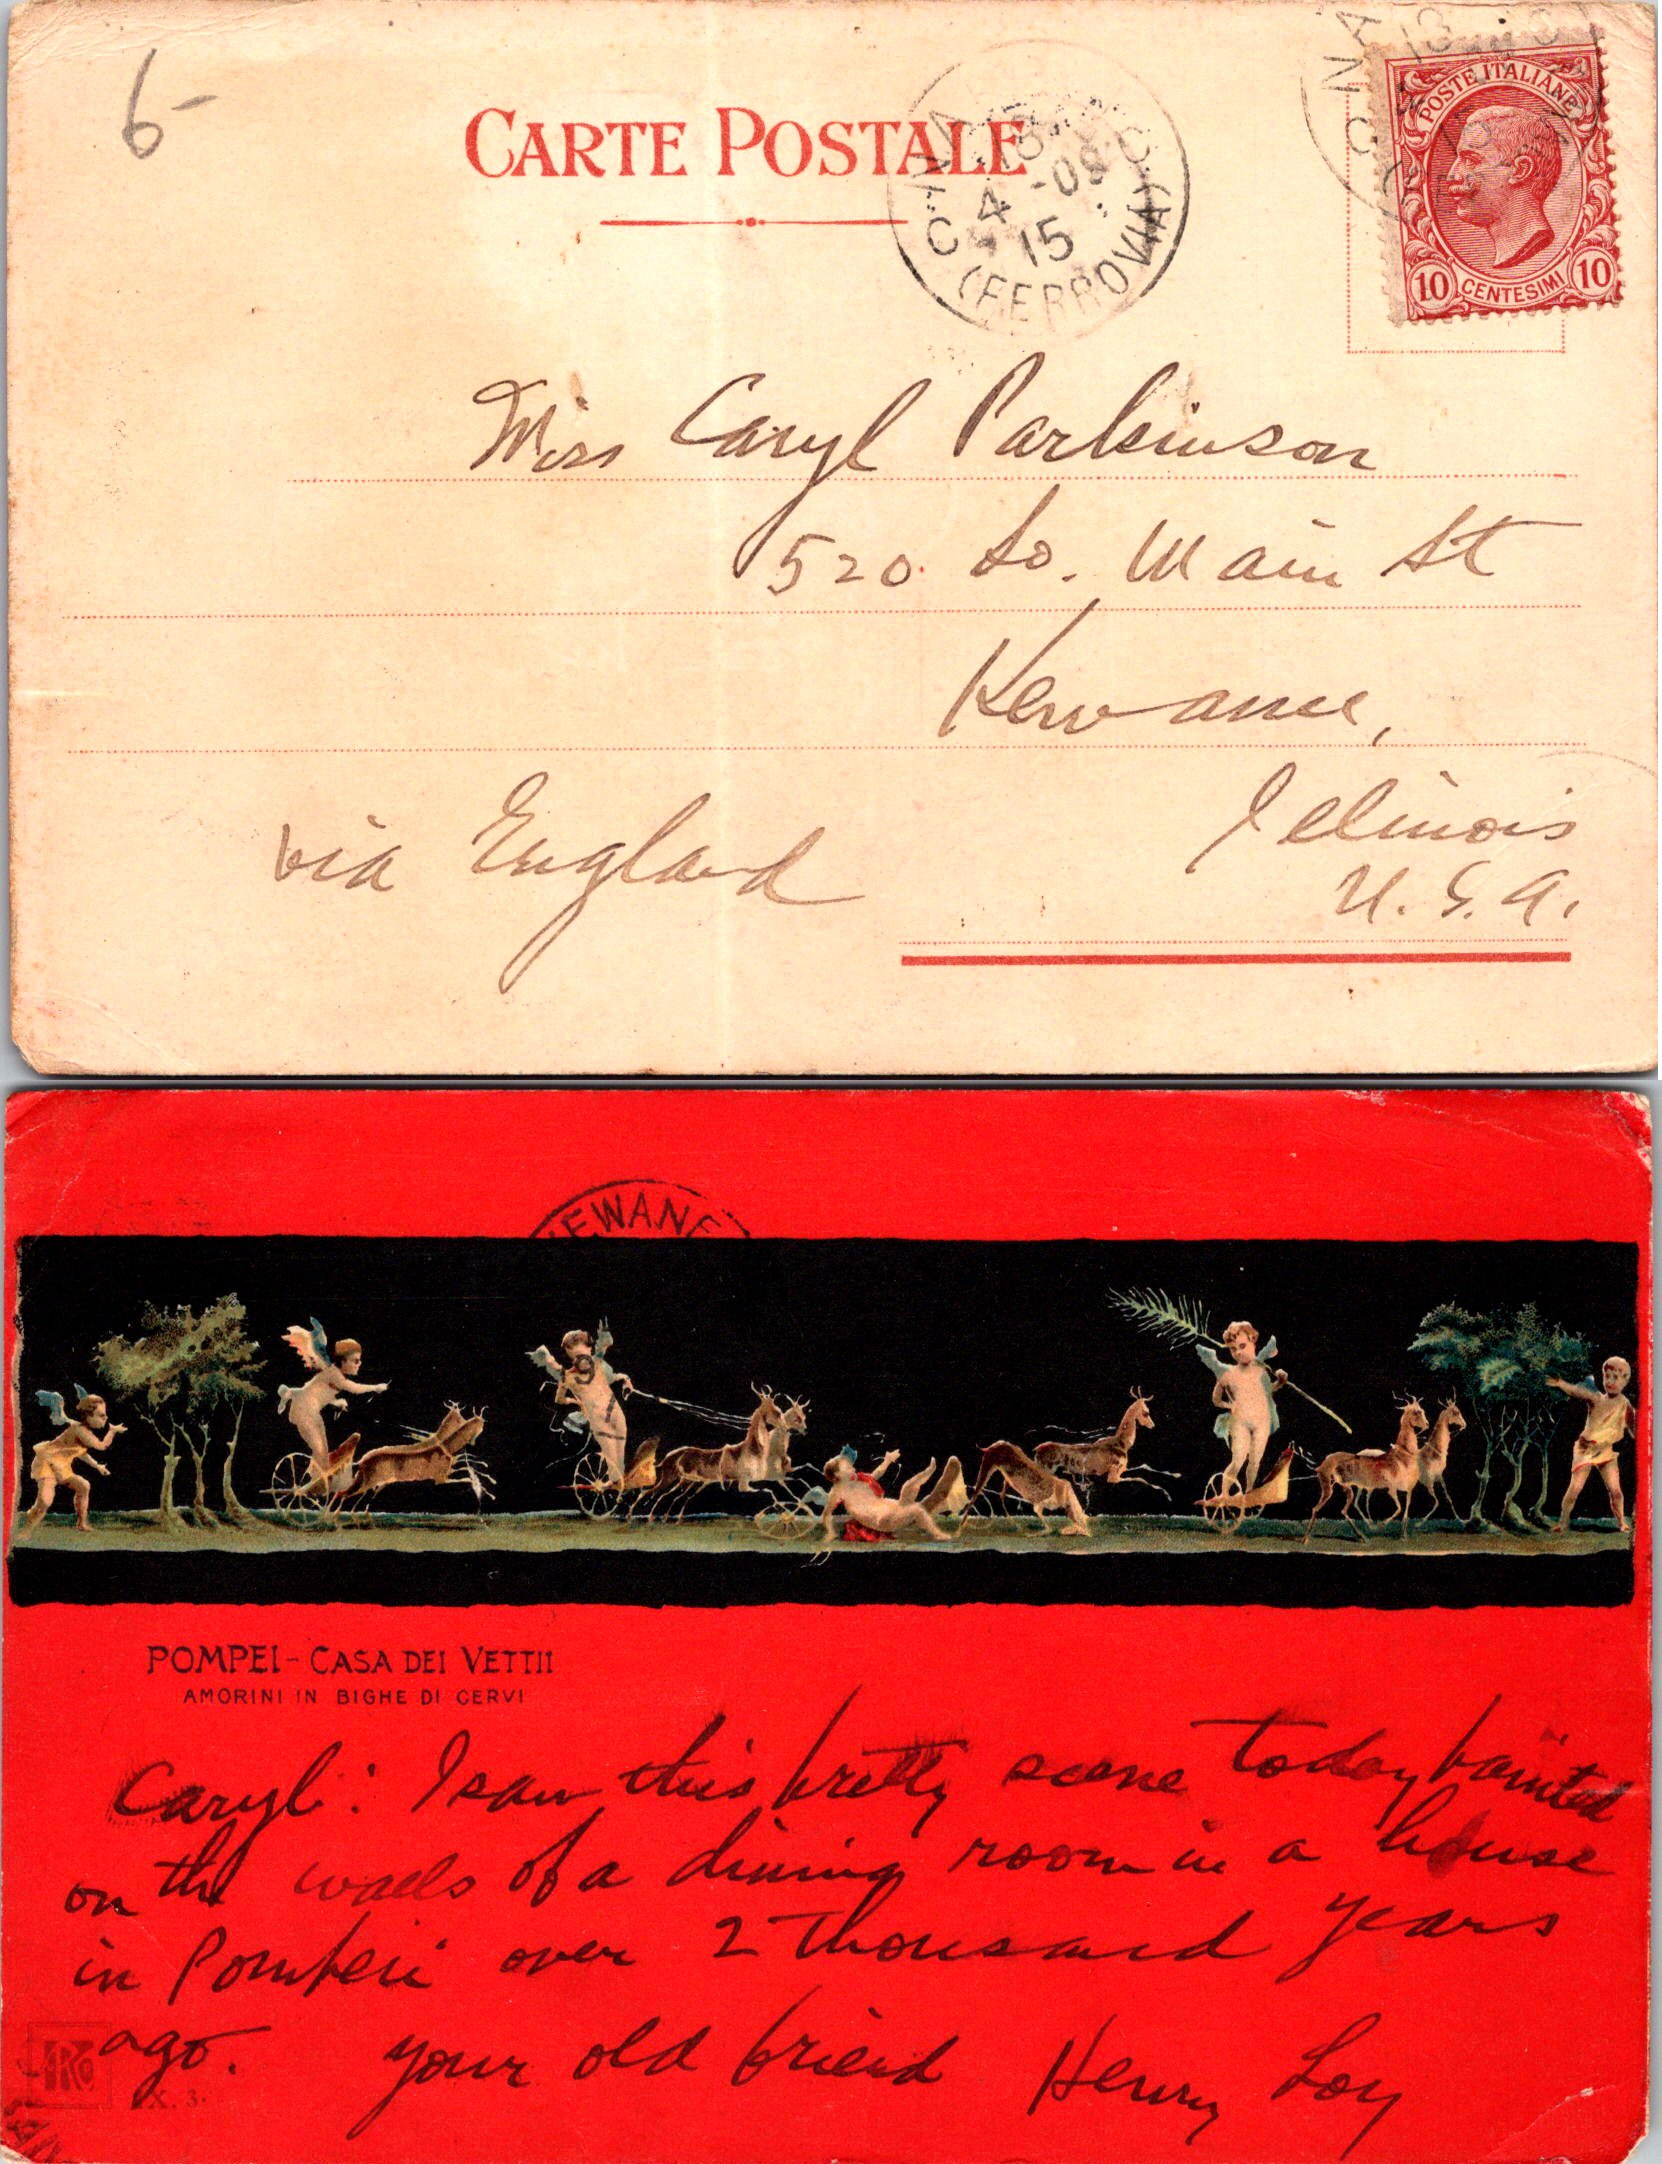 6-
CARTE POSTALE
18
4 -09
15
(FERROVIA)
POSTE ITALIANE
10 CENTESIMI 10
Miss Caryl Parkinson
520 So. Main St
Kewanee,
Illinois
via England
U.S.A.
KEWANEE
POMPEI - CASA DEI VETTII
AMORINI IN BIGHE DI CERVI
Caryl: I saw this pretty scene today painted
on the walls of a dining room in a house
in Pompeii over 2 thousand years
ago. your old friend Henry Loy
X. 3.